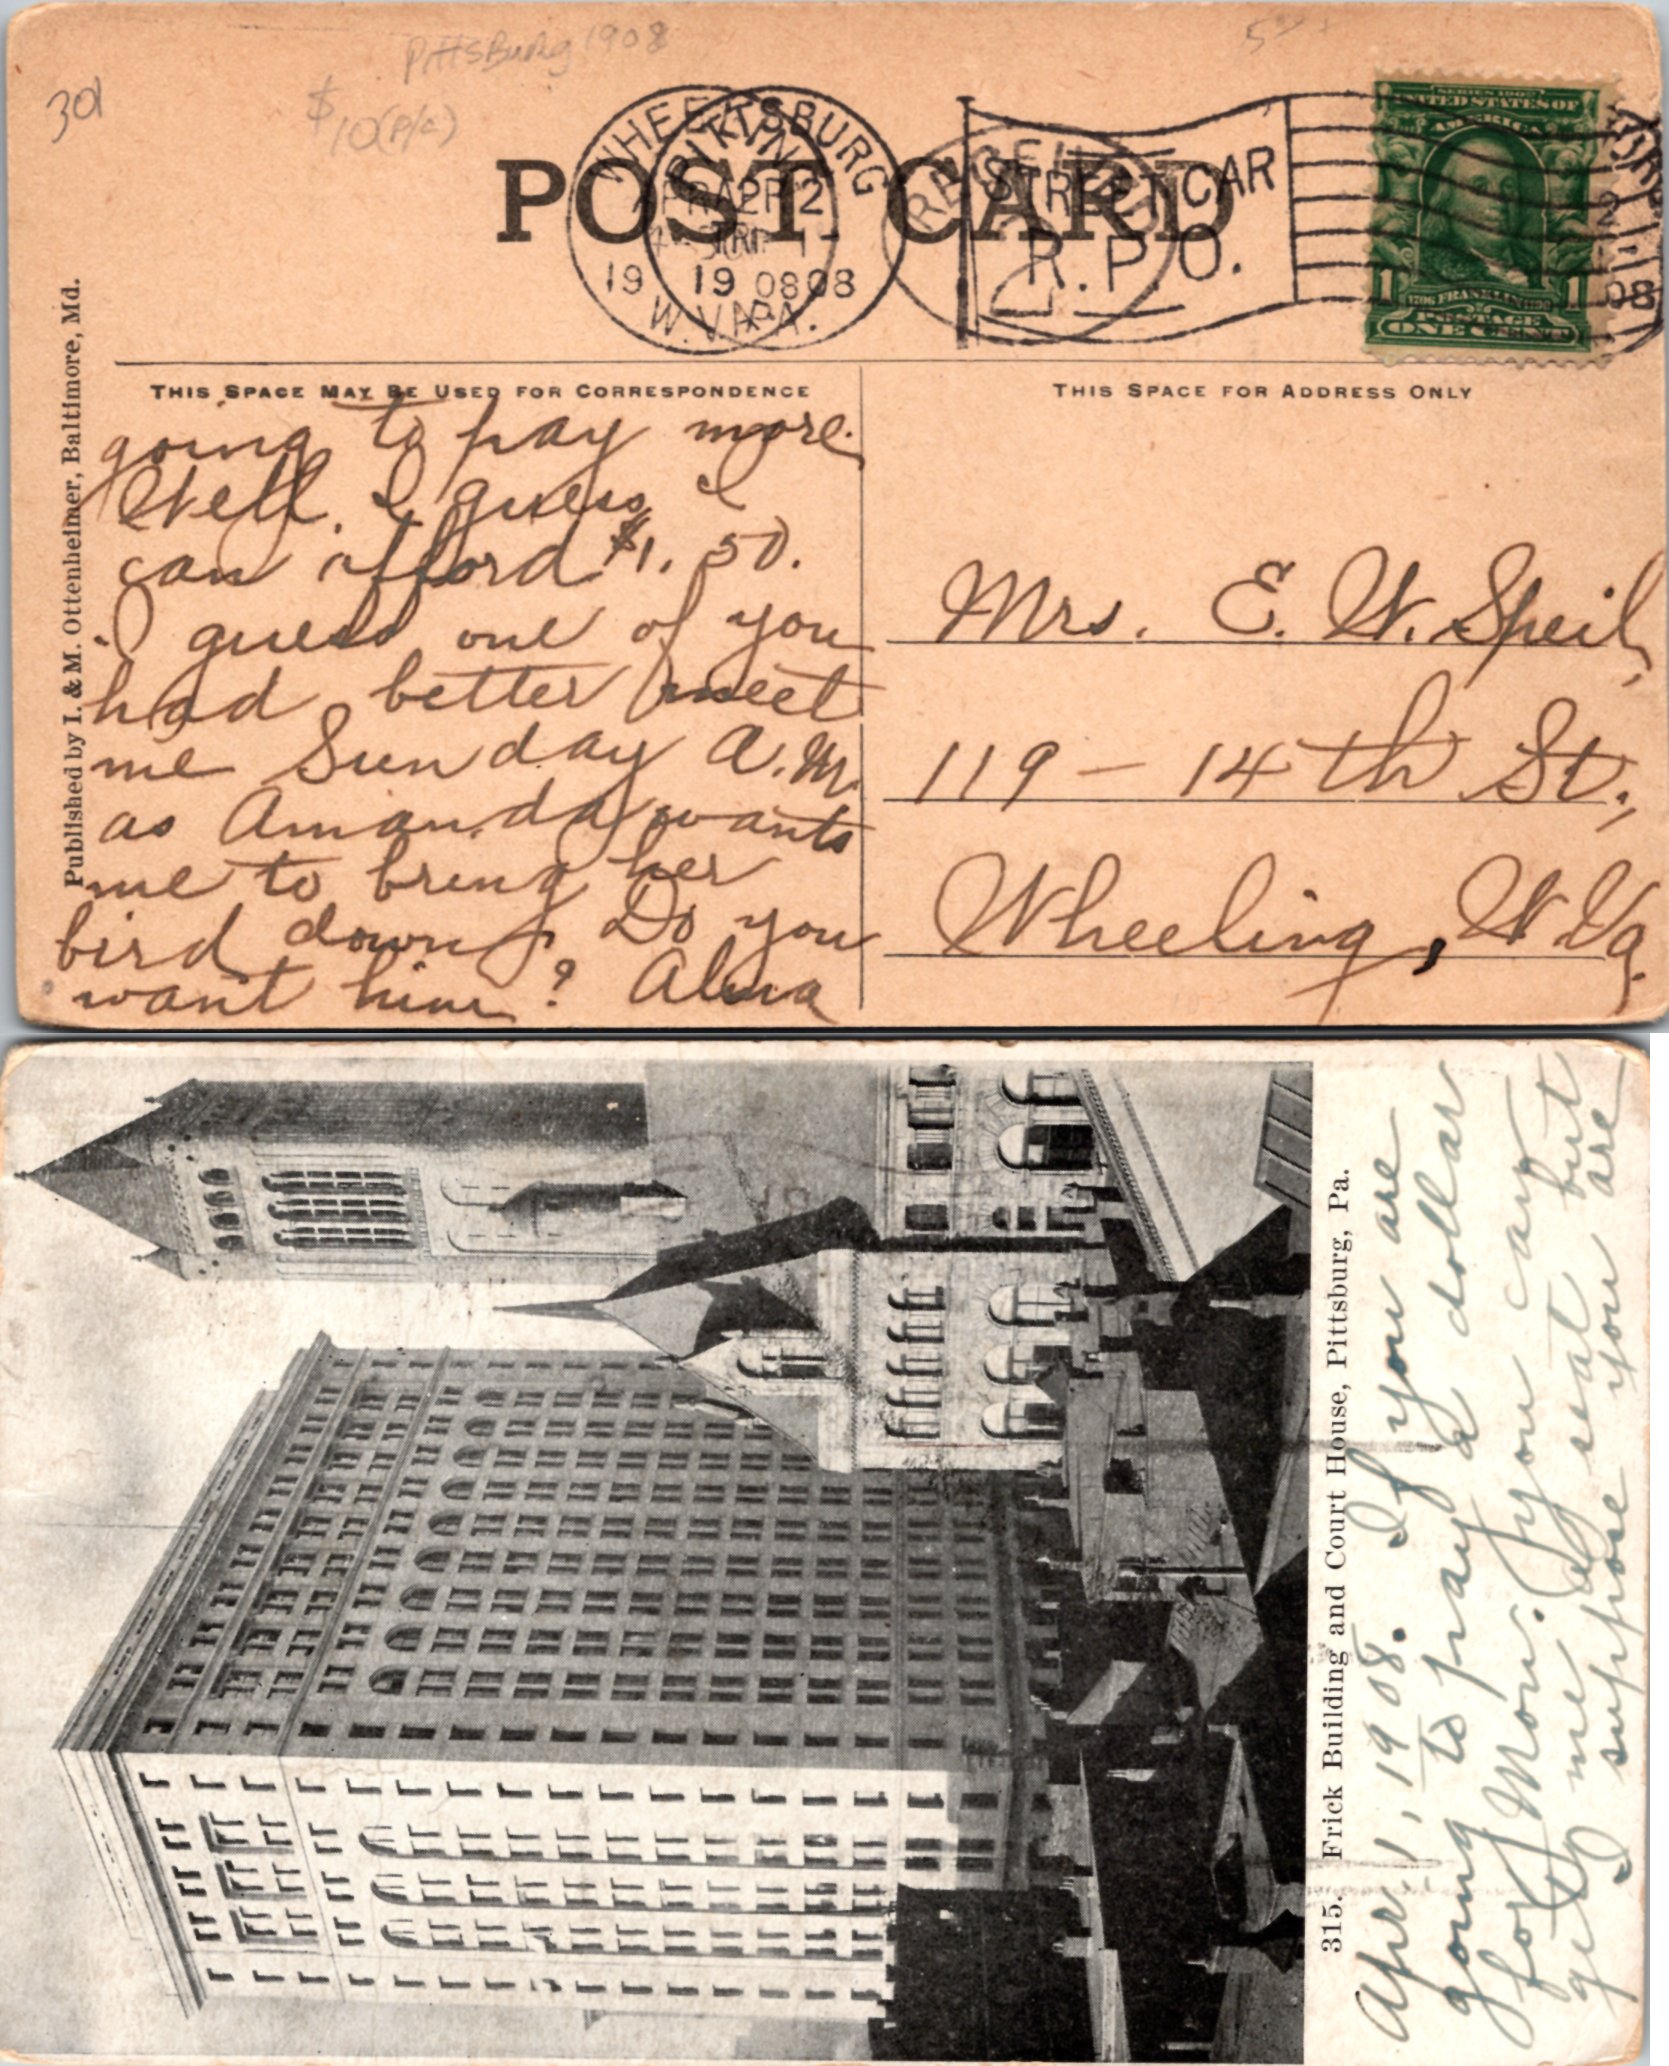 Pittsburg 1908
301
$10 (P/C)
POST CARD
WHEELING
PITTSBURG
APR 2
19 08
W. VA.
PA.
RECEIVED
2
STREET CAR
R.P.O.
SERIES 1902
UNITED STATES OF
AMERICA
1 1706 FRANKLIN 1790 1
POSTAGE
ONE CENT
Published by I. & M. Ottenheimer, Baltimore, Md.
THIS SPACE MAY BE USED FOR CORRESPONDENCE
THIS SPACE FOR ADDRESS ONLY
going to pay more.
Well. I guess I
can afford $1.50.
I guess one of you
had better meet
me Sunday A.M.
as Amanda wants
me to bring her
bird down. Do you
want him? Alma
Mrs. E. W. Speil,
119 - 14th St.,
Wheeling, W Va.
315. Frick Building and Court House, Pittsburg, Pa.
Apr. 1, 1908. If you are
going to pay a dollar
for Mon. you can
get me a seat but
I suppose you are